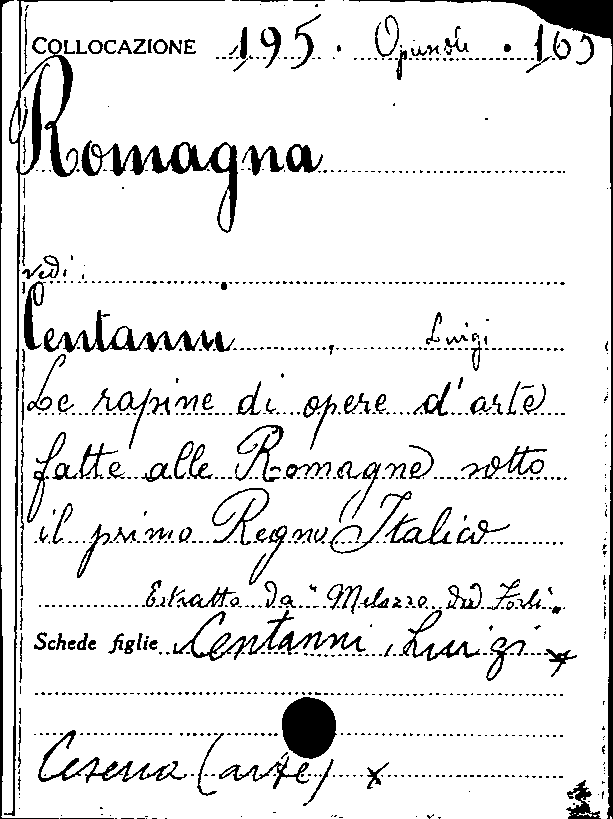 COLLOCAZIONE 195. Opuscoli. 165
Romagna
vedi:
Centanni, Luigi
Le rapine di opere d'arte
fatte alle Romagne sotto
il primo Regno Italico
Estratto da "Melozzo da Forlì"
Schede figlie Centanni, Luigi x
Cesena (arte) x